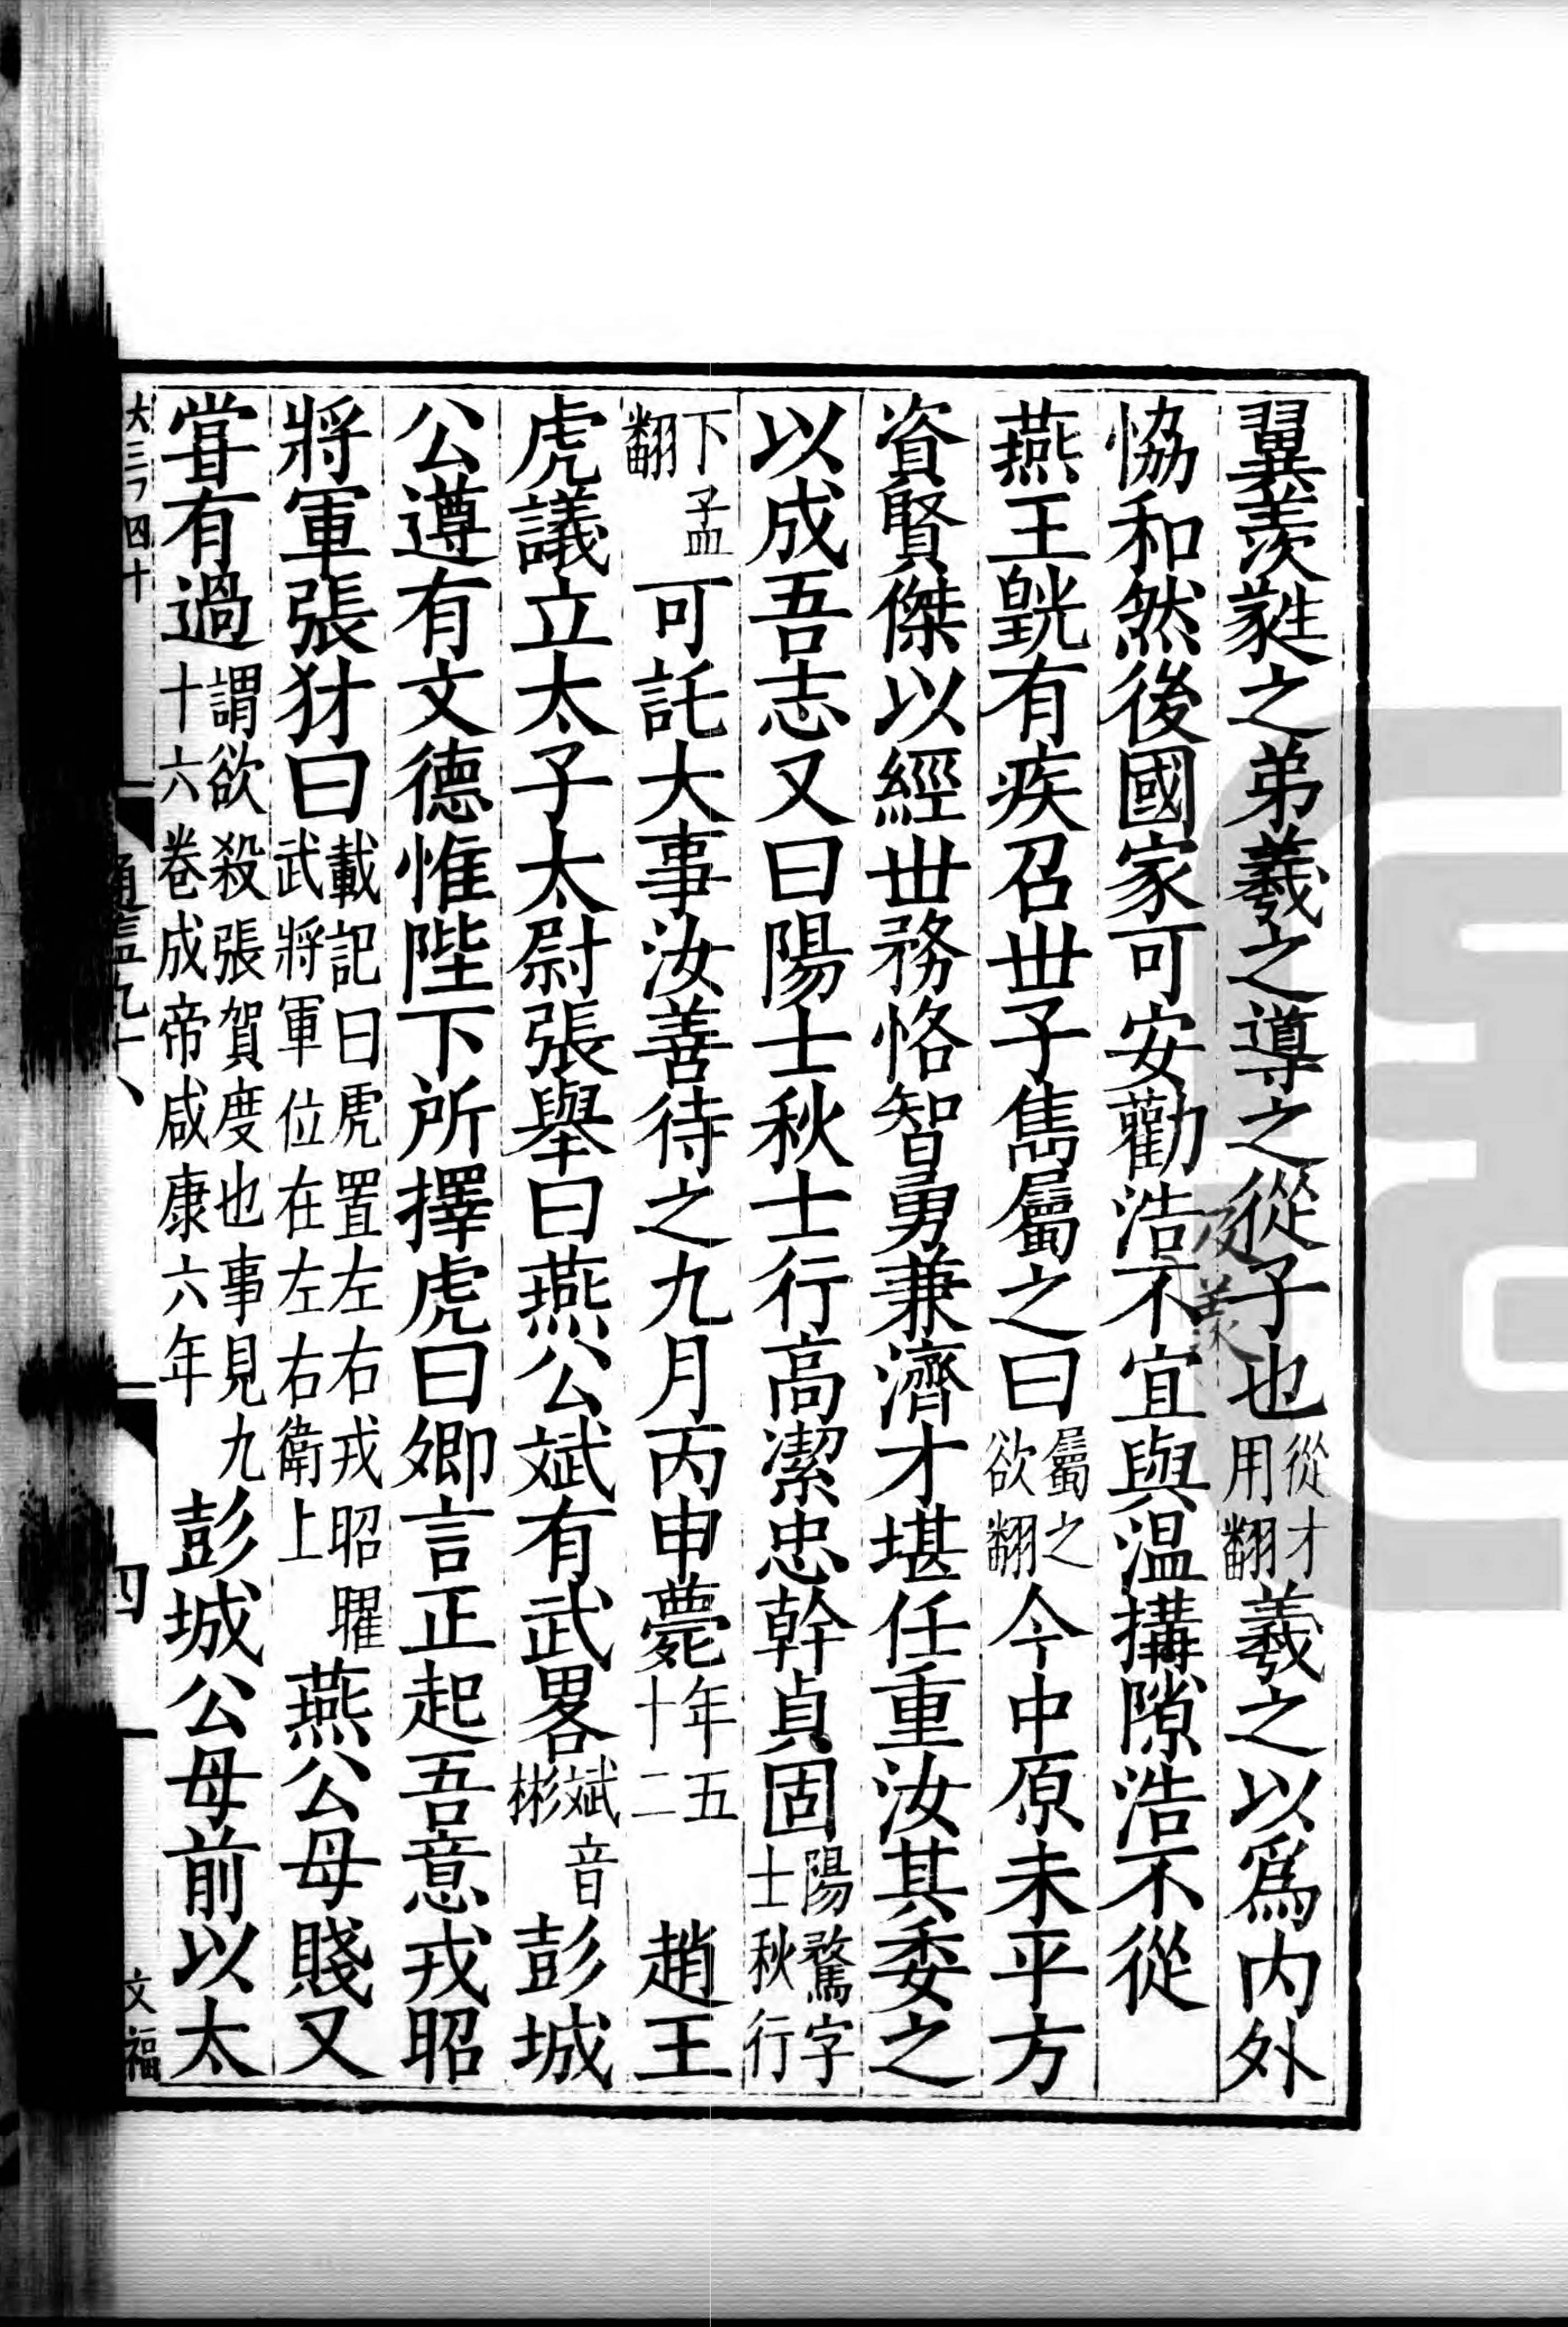 翼羨蕤之弟羲之導之從子也從才用翻羲之以爲内外
恊和然後國家可安勸浩不宜與温搆隙浩不從
燕王皝有疾召世子雋屬之曰屬之欲翻今中原未平方
資賢傑以經世務恪智勇兼濟才堪任重汝其委之
以成吾志又曰陽士秋士行高潔忠幹貞固陽騖字士秋行
下孟翻可託大事汝善待之九月丙申薨年五十二趙王
虎議立太子太尉張舉曰燕公斌有武畧斌音彬彭城
公遵有文德惟陛下所擇虎曰卿言正起吾意戎昭
將軍張豺曰載記曰虎置左右戎昭曜武將軍位在左右衛上燕公母賤又
甞有過謂欲殺張賀度也事見九十六卷成帝咸康六年彭城公母前以太
大三フ四十
四
文福